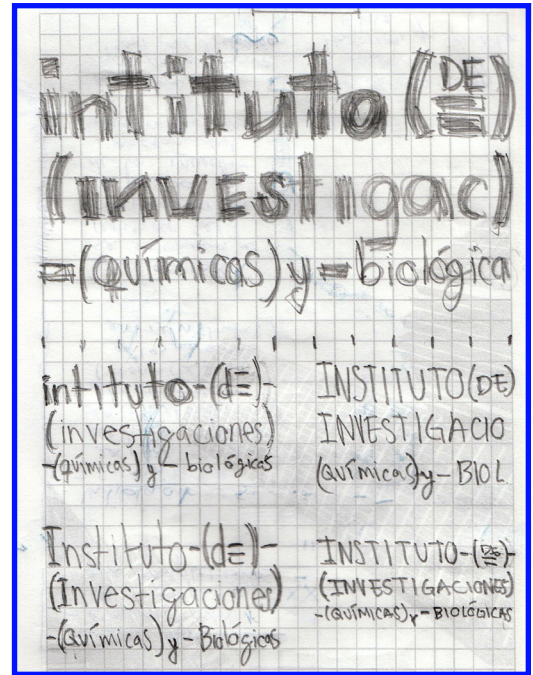 intituto (DE)
(INVEStigac)
=(químicas) y = biológica
intituto-(dE)-
(investigaciones)
-(químicas) y - biológicas
INSTITUTO(DE)
INVESTIGACIO
(químicas)y-BIOL.
Instituto-(dE)-
(Investigaciones)
-(químicas) y - Biológicas
INSTITUTO-(DE)-
(INVESTIGACIONES)
-(QUÍMICAS)y-BIOLÓGICAS